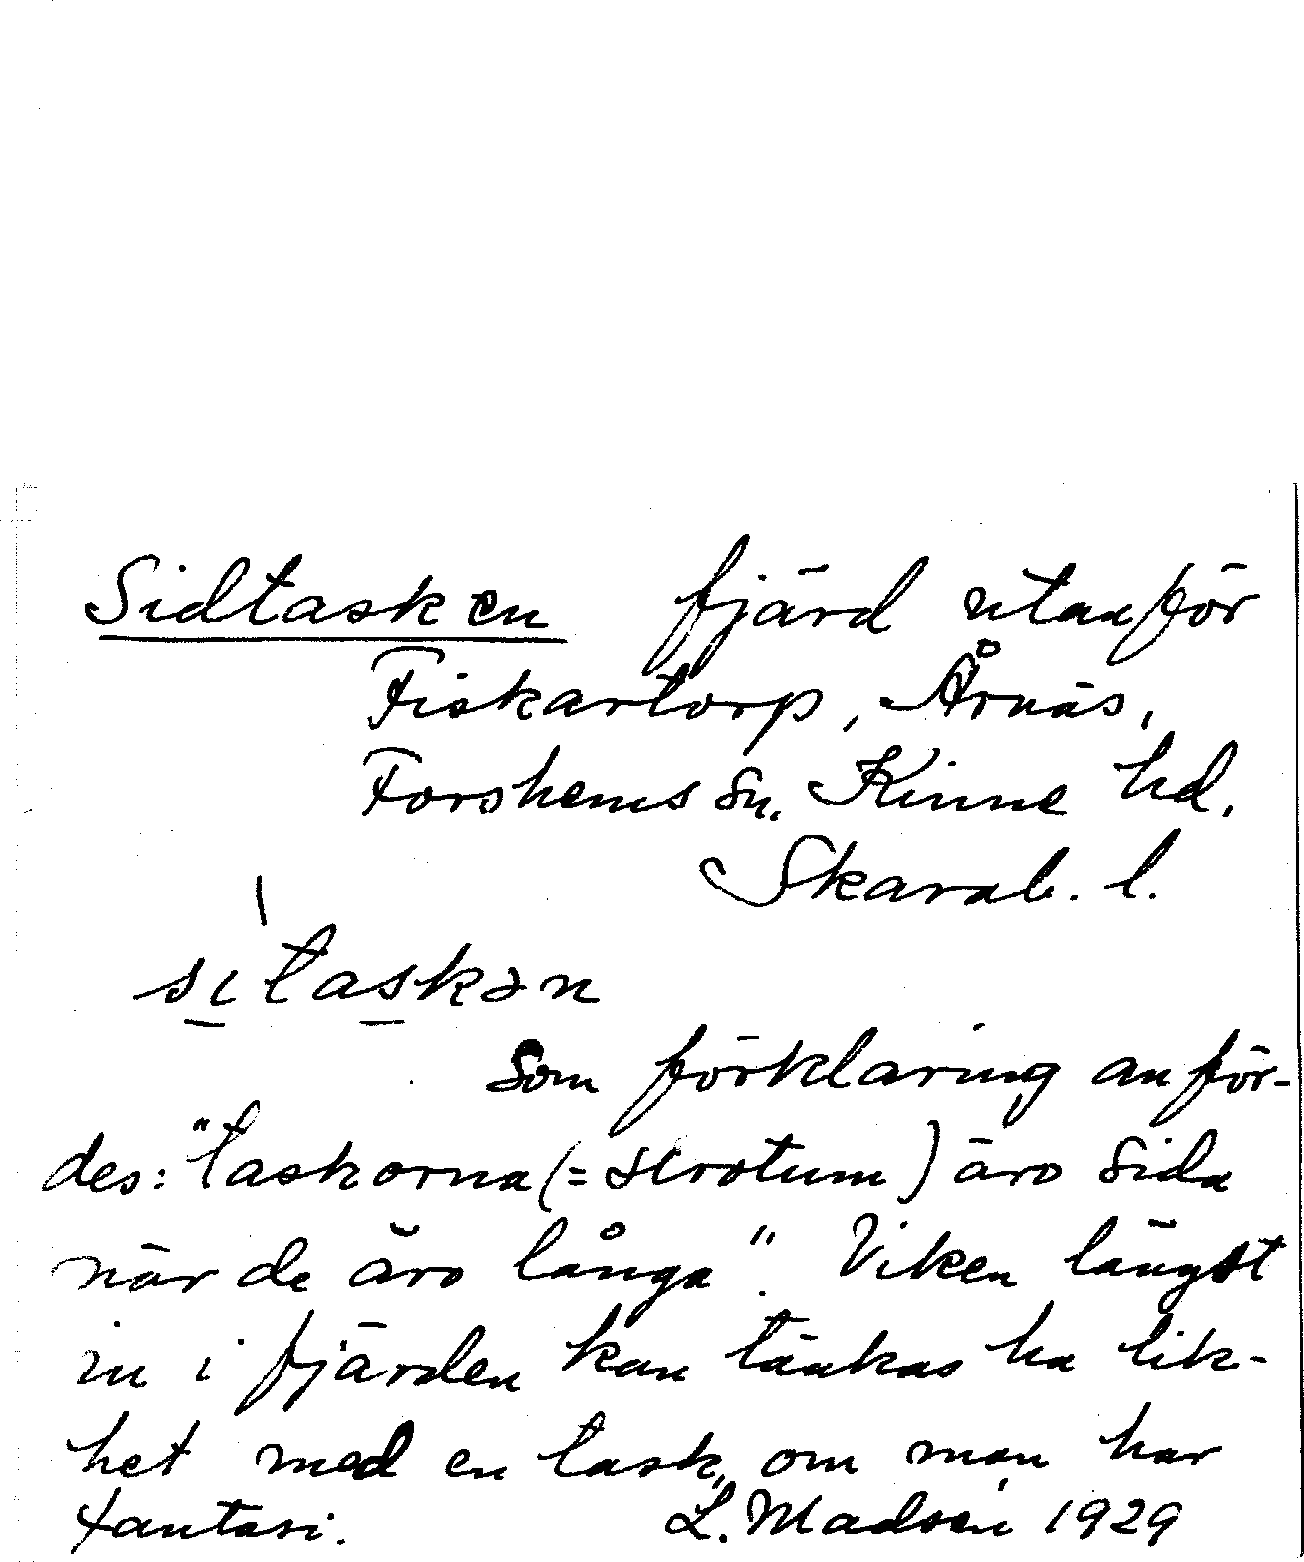 Sidtasken fjärd utanför
Fiskartorp, Årnäs,
Forshems sn. Kinne hd.
Skarab. l.
sı̍taskən
Som förklaring anför-
des: "taskorna (= skrotum) äro sida
när de äro långa". Viken längst
in i fjärden kan tänkas ha lik-
het med en task, om man har
fantasi. L. Madsén 1929